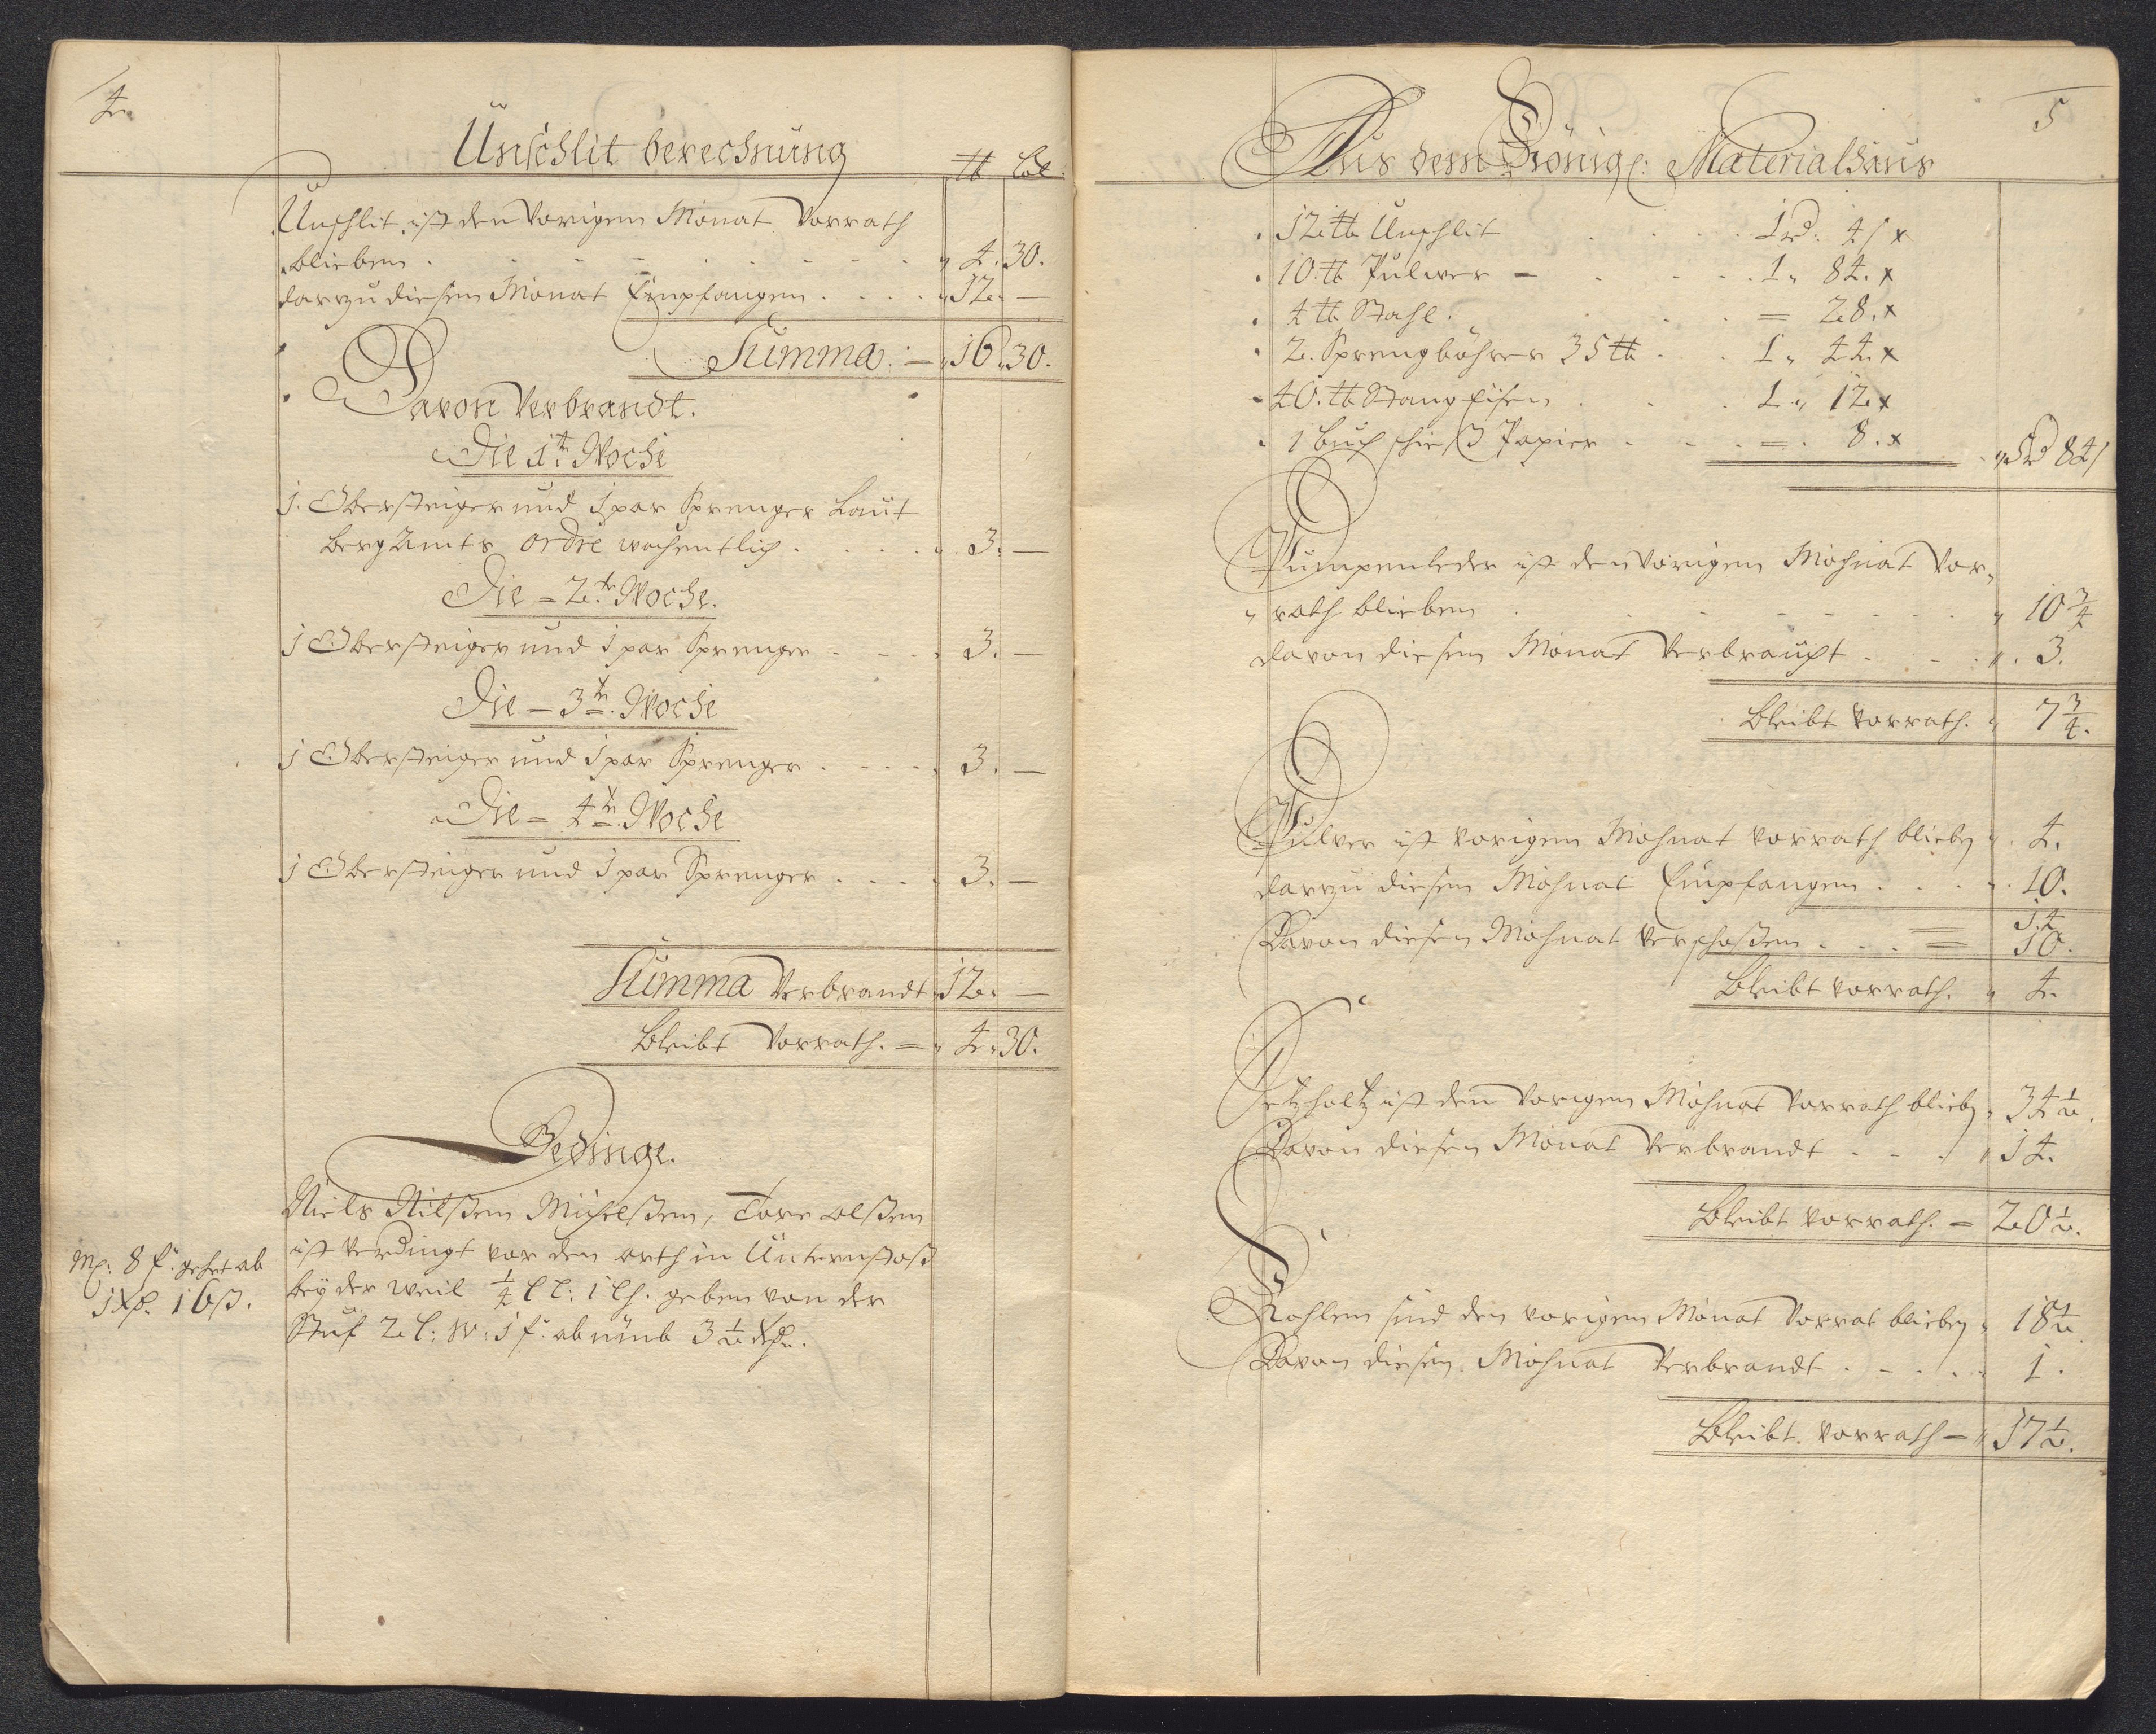 4.
Unschlit berechnung
℔ Lot
Unschlit ist den Vorigem Monat Vorrath
blieben . 4. 30.
darzu diesem Monat Empfangen . . . . 12. —
Summa. — 16. 30.
Davon Verbrandt.
Die 1te Woche
1. Obersteiger und 1 par Sprenger Laut
berg Ambts ordre wochentlich . . . . 3. —
Die = 2.te Woche.
1 Obersteiger und 1 par Sprenger . . . 3. —
Die — 3te. Woche
1 Obersteiger und 1 par Sprenger . . . . 3. —
Die = 4te. Woche
1 Obersteiger und 1 par Sprenger . . . . 3. —
Summa Verbrandt 12. —
bleibt Vorrath. = 4. 30.
Gedinge.
Niels Nilßen Michelßen, Tore olßen
ist verdingt vor den orth in Unternstoß
bey der weil ¼ geben von der
Stuf 2 l: w: 1 f: ab umb 3 ½
8 f: gehet ab
16 ß.
5
Aus dem Königl: Materialhaus
12 ℔ Unschlit . . . . 1 rd: 41 x
10. ℔ Pulver — . . . 1 „ 84. x
4 ℔ Stahl . = 28. x
2. Sprengböhrer 35 ℔ . . 1 „ 44. x
40. ℔ Stang Eisen . . . 1 „ 12 x
1 buch schieß Papier . . . = . 8. x
5 rd 84 /
Pumpenleder ist den Vorigem Mohnat Vor„
„ rath blieben . „ 10 ¾
davon diesem Monat Verbraucht . . . „ 3.
bleibt Vorrath. „ 7 ¾.
Pulver ist vorigem Mohnat vorrath blieben „ 4.
darzu diesem Mohnat Empfangen . . . . 10.
14
Davon diesen Mohnat verschoßen . . . = 10.
bleibt vorrath. „ 4.
Setzholtz ist dem Vorigem Mohnat Vorrath blieben „ 34 ½.
Davon diesen Monat Verbrandt . . . „ 14.
bleibt vorrath. = 20 ½.
Kohlen sind den vorigem Monat Vorrat blieben „ 18 ½.
Davon diesen Mohnat Verbrandt . . . . 1.
bleibt vorrath = „ 17 ½.